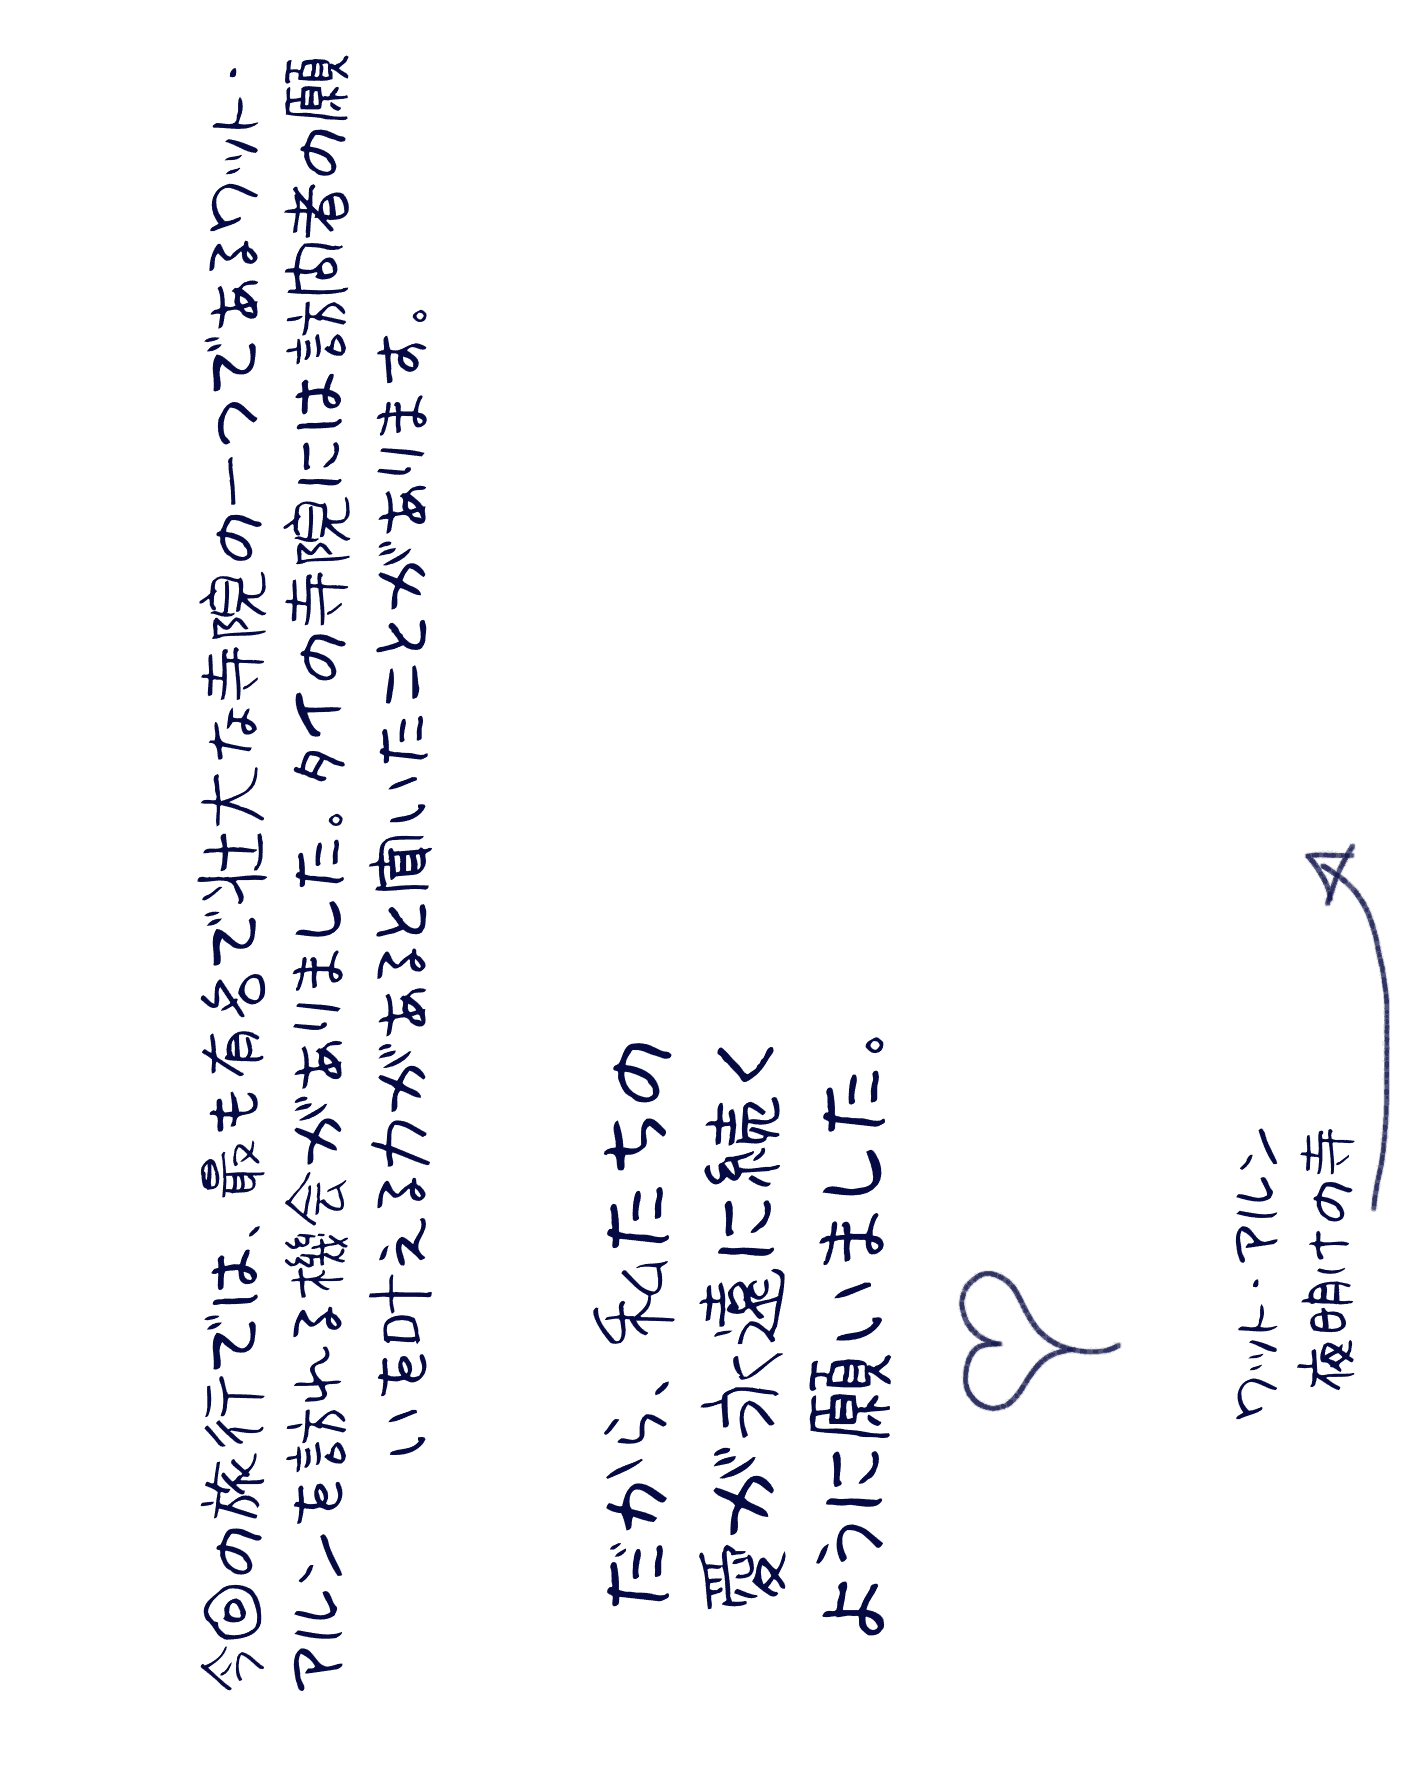 今回の旅行では、最も有名で壮大な寺院の一つであるワット・
アルンを訪れる機会がありました。タイの寺院には訪問者の願
いを叶える力があると聞いたことがあります。
だから、私たちの
愛がうく遠に続く
ように願いました。
ワット・アルン
夜明けの寺